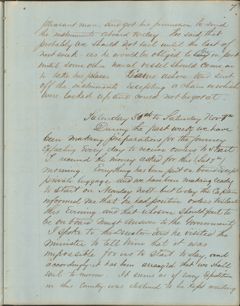 7
pleasant man and got his permission to send
the instruments aboard today. He said that
probably we should not sail until the last of
next week as he would be obliged to lay in port
until some other naval vessel should come on
to take his place. ashore and sent
off the instruments excepting a chain which
was locked up and could not be got at.
Saturday to Saturday Nov
During the past week we have
been making preparations for the
Expecting every day to receive orders to Start
I received the money asked for this
morning. Everything has been put on board except
private luggage and we have been making ready
to start on Monday next but today the Captain
informed me that he had positive orders to leave
this evening and that should
be on board tonight whereever the Government
I spoke to the director and he visited the
minister to tell him that it was
impossible for us to start today, and
accordingly it has been arranged that we shall
wait to morrow. It seems as if any Expedition
in this Country was destined to be kept waiting